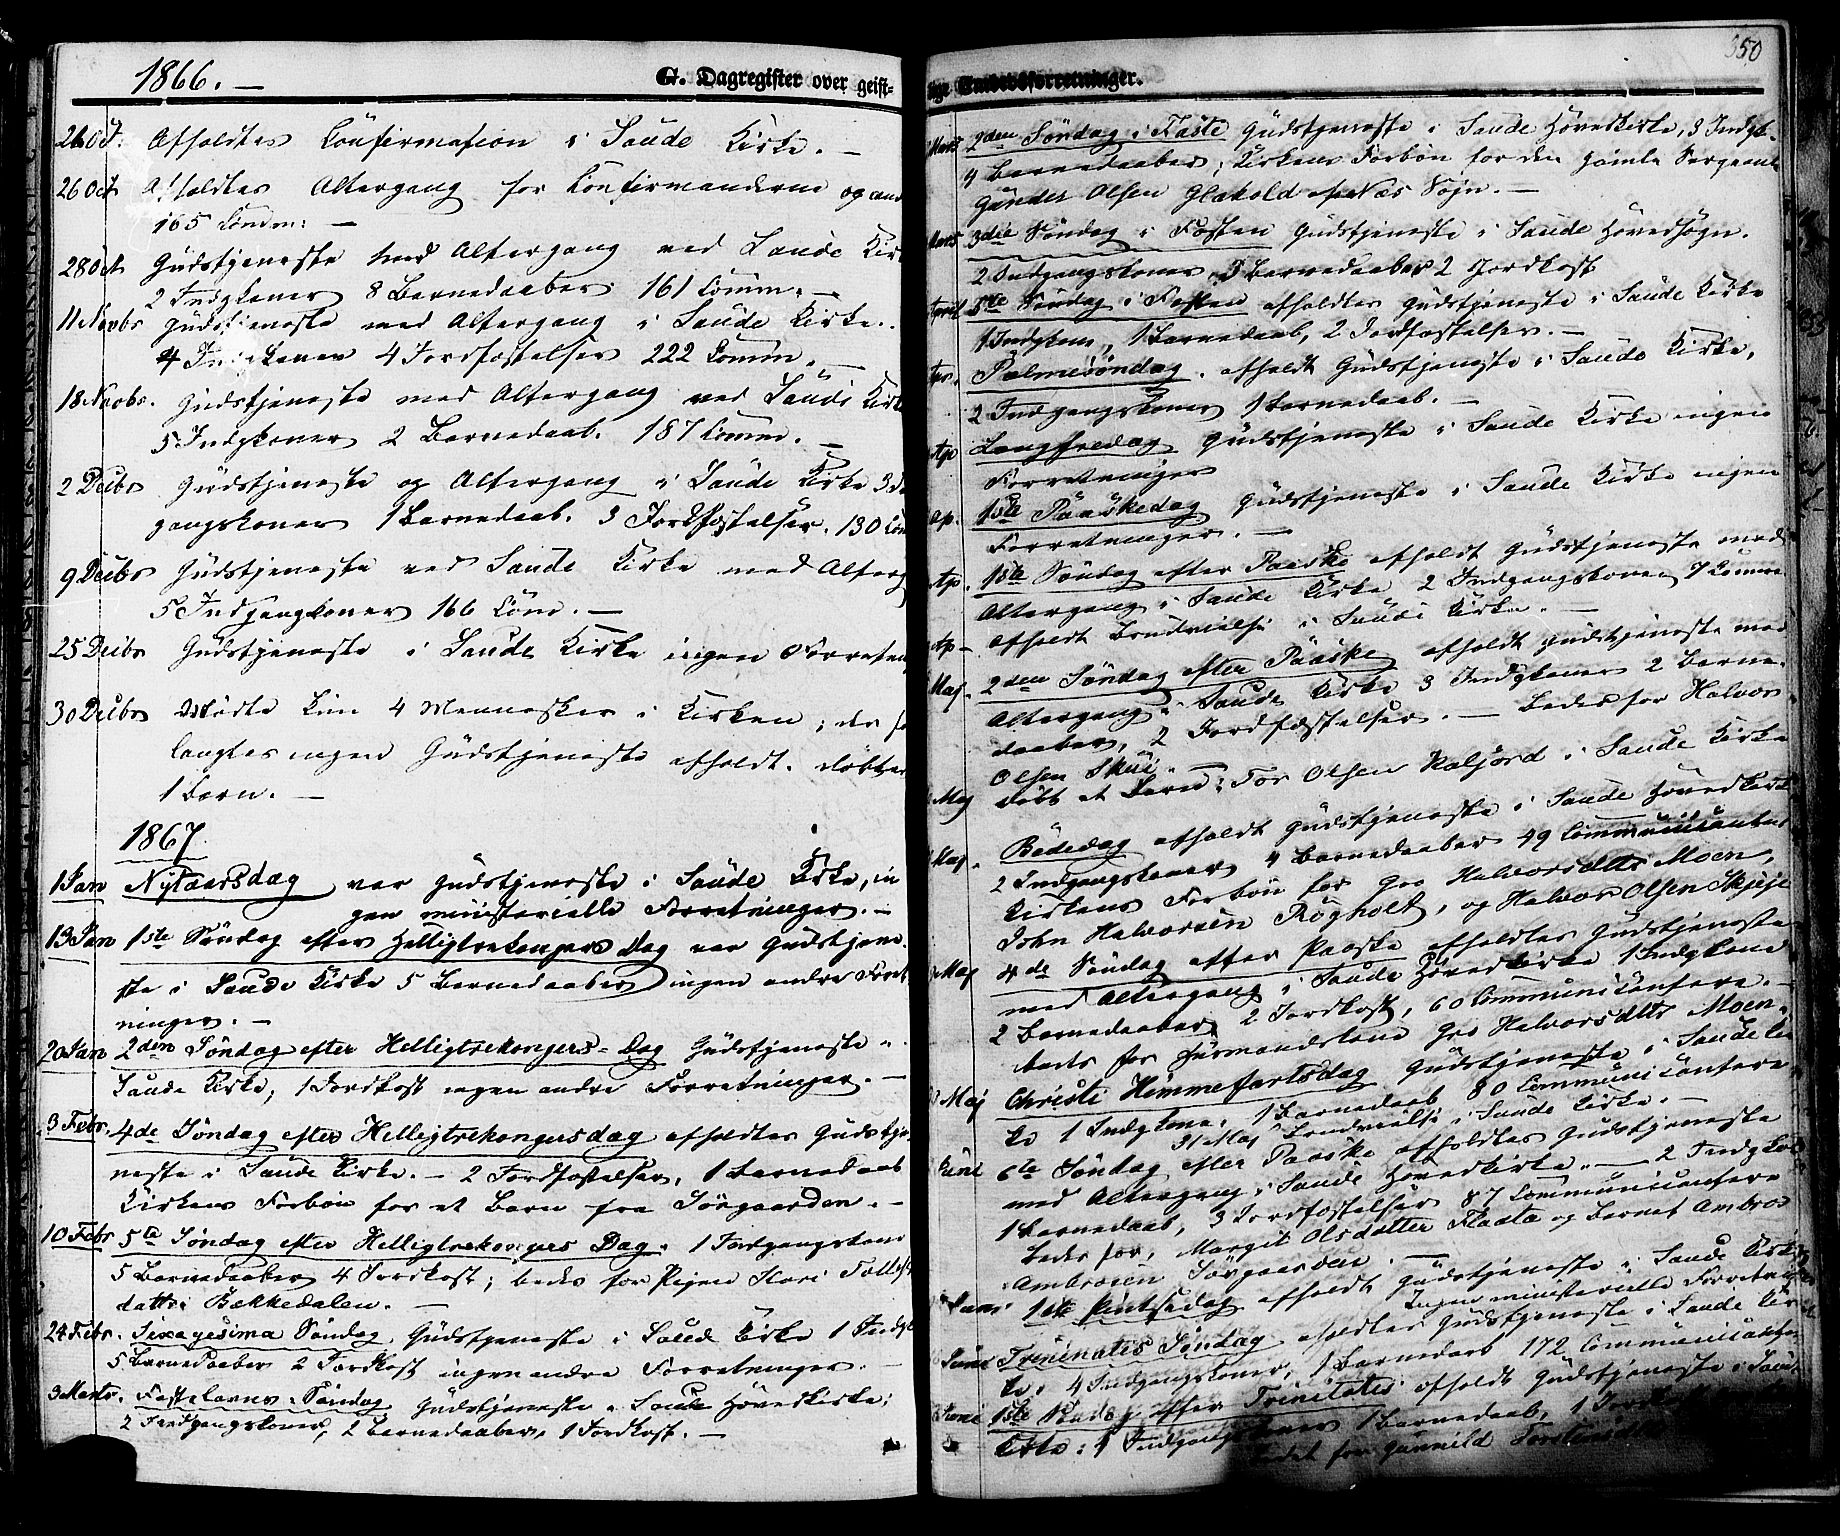 1866. —
G. Dagregister over geist-
26 Oct. Afholdtes Confirmation i Saude Kirke. —
26 Oct Afholdtes Altergang for Confirmanderne og
165 Comm: —
28 Oct Gudstjeneste med Altergang ved Saude Kir
2 Indgkoner 8 Barnedaaber 161 Comm. —
11 Novbr Gudstjeneste med Altergang i Saude Kirke.
4 Indgkoner 4 Jordfæstelser 222 Comm. —
18 Novbr. Gudstjeneste med Altergang ved Saude Kirk
5 Indgkoner 2 Barnedaab. 187 Comm. —
2 Decbr Gudstjeneste og Altergang i Saude Kirke 3
gangskoner 1 Barnedaab. 3 Jordfæstelser. 130 Com
9 Decbr Gudstjeneste ved Saude Kirke med Alterg
5 Indgangkoner 166 Com. —
25 Decbr Gudstjeneste i Saude Kirke ingen Forretn
30 Decbr Mødte kun 4 Mennesker i Kirken; der
langtes ingen Gudstjeneste afholdt. døbtes
1 Barn. —
1867.
1 Jan Nytaarsdag var Gudstjeneste i Saude Kirke, in
gen ministerielle Forretninger. —
13 Jan 1ste Søndag efter Helligtrekongers Dag var Gudstjene
ste i Saude Kirke 5 Barnedaaber ingen andre Forret
ninger. —
20 Jan 2den Søndag efter Helligtrekongers-Dag Gudstjeneste i
Saude Kirke, 1 Jordkast ingen andre Forretninger. —
3 Febr. 4de Søndag efter Helligtrekongersdag afholdtes Gudstje
neste i Saude Kirke. — 2 Jordfæstelser, 1 Barnedaab
Kirkens Forbøn for et Barn fra Sørgaarden. —
10 Febr 5te Søndag efter Helligtrekongers Dag. 1 Indgangskone
5 Barnedaaber 4 Jordkast; bedes for Pigen Kari
datter Bækkedalen. —
24 Febr. Sexagesima Søndag, Gudstjeneste i Saude Kirke 1 Indgk
5 Barnedaaber 2 Jordkast ingen andre Forretninger. —
3 Marts. Fastelavns Søndag Gudstjeneste i Saude Hovedkirke;
2 Indgangskoner, 2 Barnedaaber, 1 Jordkast. —
350
lige Embedsforretninger.
Marts 2den Søndag i Faste Gudstjeneste i Saude Hovedkirke, 3 Indgk.
4 Barnedaaber; Kirkens Forbøn for den gamle Sergeant
Gunder Olsen af Næs Sogn. —
Marts 3die Søndag i Fasten Gudstjeneste i Saude Hovedsogn.
2 Indgangskoner 3 Barnedaaber 2 Jordkast
April 5te Søndag i Fasten afholdtes Gudstjeneste i Saude Kirke
1 Indgkone, 1 Barnedaab, 2 Jordfæstelser. —
Apr. Palmesøndag. afholdt Gudstjeneste i Saude Kirke,
2 Indgangskoner 1 Barnedaab. —
Ap Langfredag Gudstjeneste i Saude Kirke ingen
Forretninger
Ap. 1ste Paaskedag Gudstjeneste i Saude Kirke ingen
Forretninger. —
Ap. 1ste Søndag efter Paaske afholdt Gudstjeneste med
Altergang i Saude Kirke 2 Indgangskoner 7 Comm.
Ap — afholdt Brudvielse i Saude Kirke. —
Maj. 2den Søndag efter Paaske afholdt Gudstjeneste med
Altergang i Saude Kirke 3 Indgkoner 2 Barne-
daaber, 2 Jordfæstelser. — Bedes for Halvor
Olsen Skue. —
Maj døbt et Barn: Tor Olsen Haljord i Saude Kirke
Maj. Bededag afholdt Gudstjeneste i Saude Hovedkirke
2 Indgangskoner 4 Barnedaaber 49 Communicanter
Kirkens Forbøn for Gro Halvorsdtr Moen,
John Halvorsen Røgholt, og Halvor Olsen Skjeje
Maj 4de Søndag efter Paaske afholdtes Gudstjeneste
med Altergang i Saude Hovedkirke 1 Indgkone
2 Barnedaaber 2 Jordkast, 60 Communicantere. —
beds for Husmandskone Gro Halvorsdtr Moen.
Maj Christi Himmelfartsdag Gudstjeneste i Saude Kir
ke 1 Indgkone, 1 Barnedaab 80 Communicantere
31 Maj Brudvielse i Saude Kirke. —
Juni 6te Søndag efter Paaske afholdtes Gudstjeneste
med Altergang i Saude Hovedkirke. — 2 Indgkoner
1 Barnedaab, 3 Jordfæstelser 87 Communicantere
Bedes for, Margit Olsdatter Flaata og Barnet Ambros
Ambrosen Sørgaarden. —
Juni 1ste Pintsedag afholdt Gudstjeneste i Saude Kirke
Ingen ministerielle Forretnin
Juni Trinitatis Søndag afholdtes Gudstjeneste i Saude Kir
ke. 4 Indgangskoner, 1 Barnedaab 172 Communicanter
Juni 1ste Søndag efter Trinitatis afholdt Gudstjeneste i Saude
Kirke: 4 Indgangskoner 1 Barnedaab, 1
bedet for Gunnild